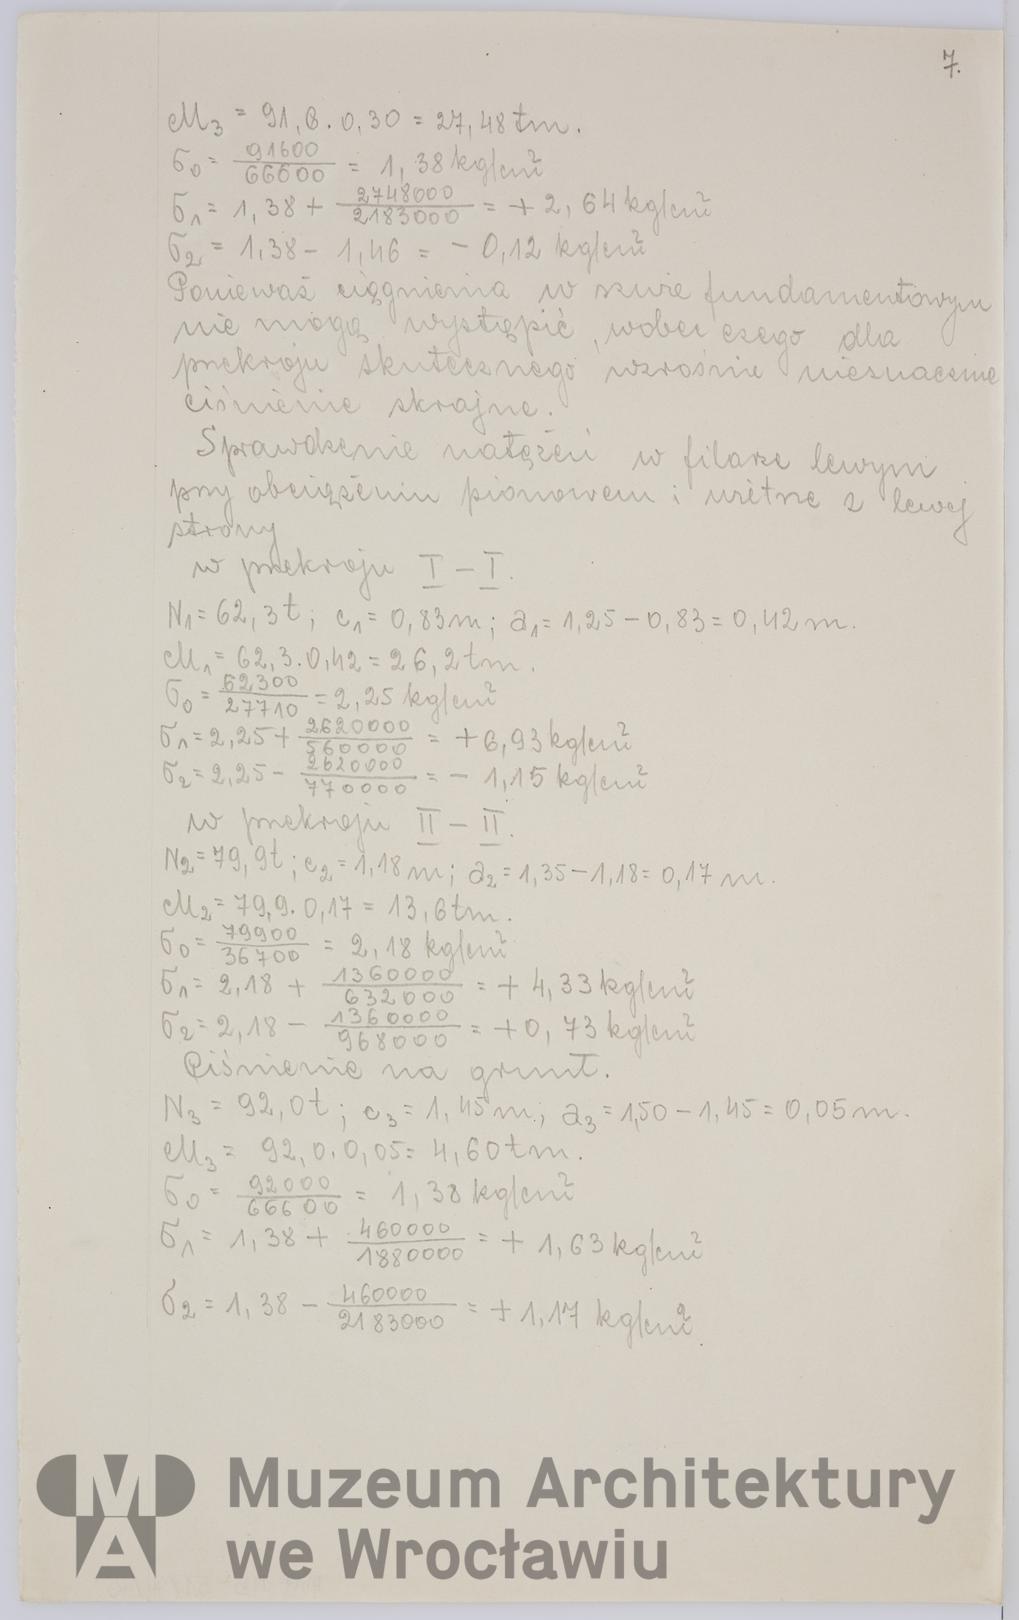 7.
M₃ = 91,6 . 0,30 = 27,48 tm.
σ₀ = 91600/66600 = 1,38 kg/cm²
σ₁ = 1,38 + 2748000/2183000 = + 2,64 kg/cm²
σ₂ = 1,38 - 1,46 = - 0,12 kg/cm²
Ponieważ ciągnienia w szwie fundamentowym
nie mogą wystąpić, wobec czego dla
przekroju skutecznego wzrośnie nieznacznie
ciśnienie skrajne.
Sprawdzenie natężeń w filarze lewym
przy obciążeniu pionowem i wietrze z lewej
strony
w przekroju I - I.
N₁ = 62,3 t; c₁ = 0,83 m; a₁ = 1,25 - 0,83 = 0,42 m.
M₁ = 62,3 . 0,42 = 26,2 tm.
σ₀ = 62300/27710 = 2,25 kg/cm²
σ₁ = 2,25 + 2620000/560000 = + 6,93 kg/cm²
σ₂ = 2,25 - 2620000/770000 = - 1,15 kg/cm²
w przekroju II - II.
N₂ = 79,9 t; c₂ = 1,18 m; a₂ = 1,35 - 1,18 = 0,17 m.
M₂ = 79,9 . 0,17 = 13,6 tm.
σ₀ = 79900/36700 = 2,18 kg/cm²
σ₁ = 2,18 + 1360000/632000 = + 4,33 kg/cm²
σ₂ = 2,18 - 1360000/968000 = + 0,73 kg/cm²
Ciśnienie na grunt.
N₃ = 92,0 t; c₃ = 1,45 m.; a₃ = 1,50 - 1,45 = 0,05 m.
M₃ = 92,0 . 0,05 = 4,60 tm.
σ₀ = 92000/66600 = 1,38 kg/cm²
σ₁ = 1,38 + 460000/1880000 = + 1,63 kg/cm²
σ₂ = 1,38 - 460000/2183000 = + 1,17 kg/cm².
MA
Muzeum Architektury
we Wrocławiu